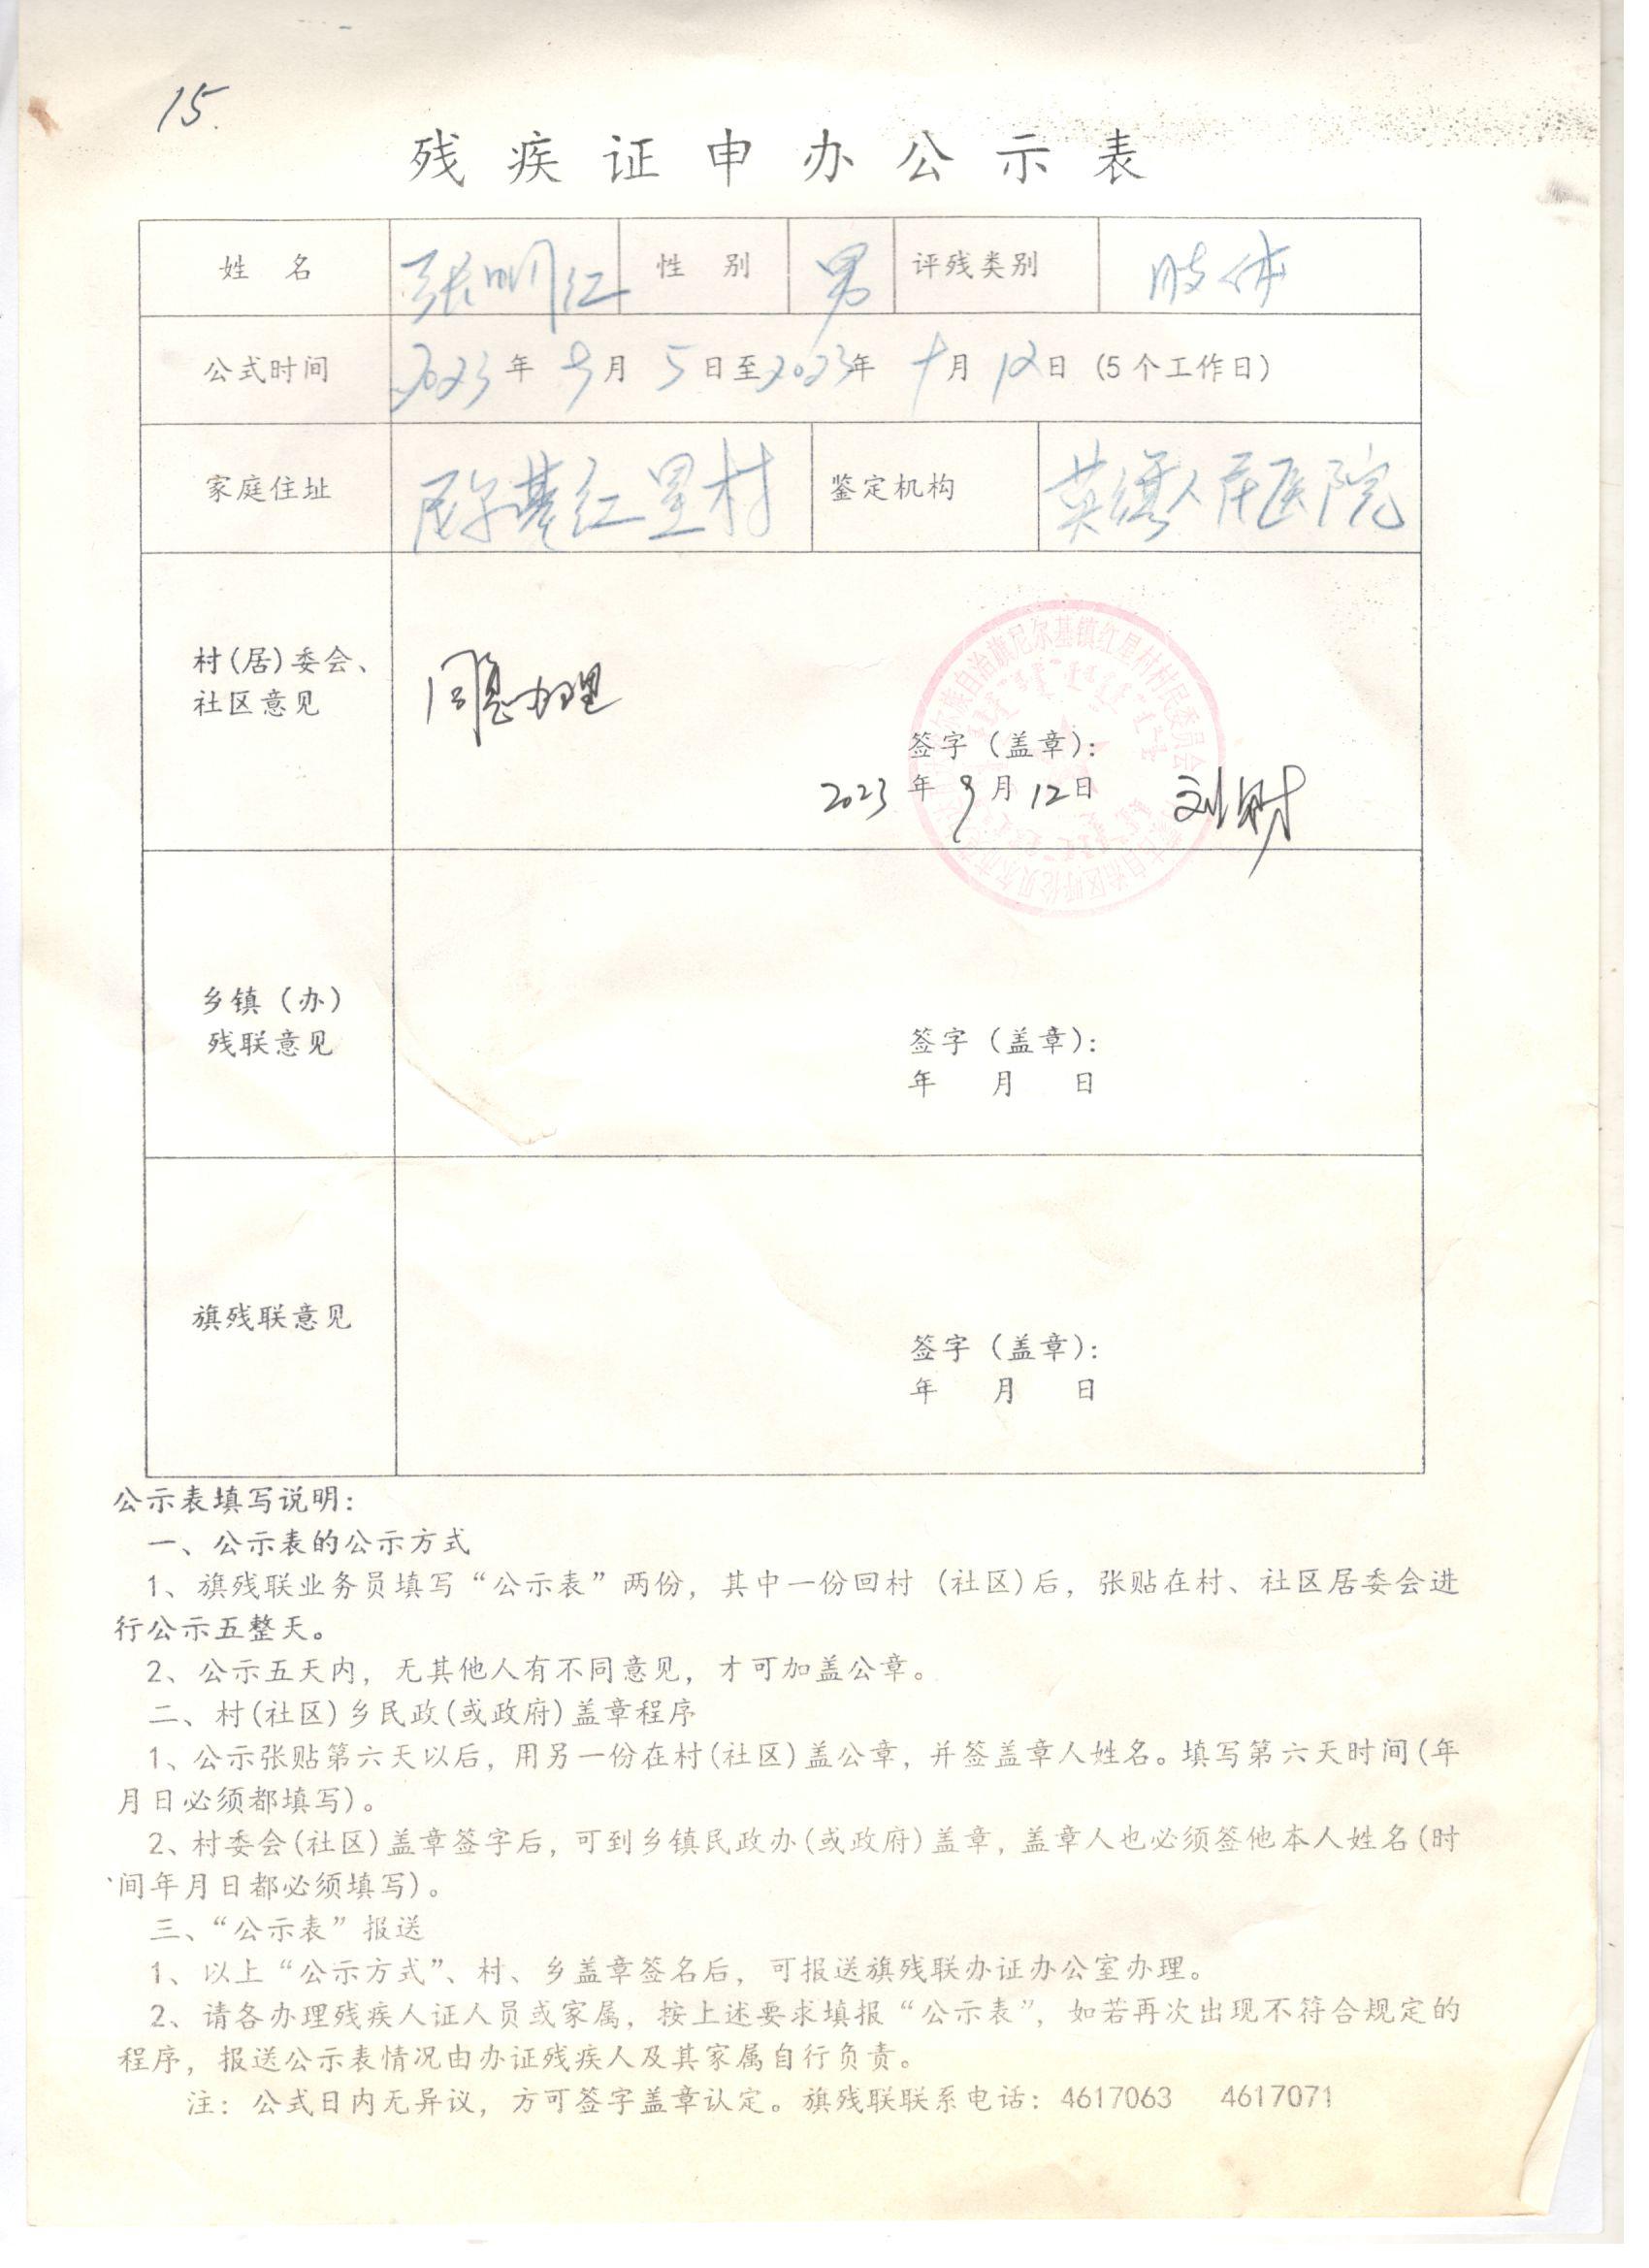 15.
残疾证申办公示表
姓 名 张明红 性 别 男 评残类别 肢体
公式时间 2023年9月5日至2023年9月12日(5个工作日)
家庭住址 尼尔基红星村 鉴定机构 人民医院
村(居)委会、
社区意见
同意办理
签字(盖章):
2023年9月12日 刘财
自治旗尼尔基镇红星村村民委员会
乡镇(办)
残联意见
签字(盖章):
年 月 日
旗残联意见
签字(盖章):
年 月 日
公示表填写说明:
一、公示表的公示方式
1、旗残联业务员填写“公示表”两份，其中一份回村(社区)后，张贴在村、社区居委会进
行公示五整天。
2、公示五天内，无其他人有不同意见，才可加盖公章。
二、村(社区)乡民政(或政府)盖章程序
1、公示张贴第六天以后，用另一份在村(社区)盖公章，并签盖章人姓名。填写第六天时间(年
月日必须都填写)。
2、村委会(社区)盖章签字后，可到乡镇民政办(或政府)盖章，盖章人也必须签他本人姓名(时
间年月日都必须填写)。
三、“公示表”报送
1、以上“公示方式”、村、乡盖章签名后，可报送旗残联办证办公室办理。
2、请各办理残疾人证人员或家属，按上述要求填报“公示表”，如若再次出现不符合规定的
程序，报送公示表情况由办证残疾人及其家属自行负责。
注：公式日内无异议，方可签字盖章认定。旗残联联系电话：4617063 4617071